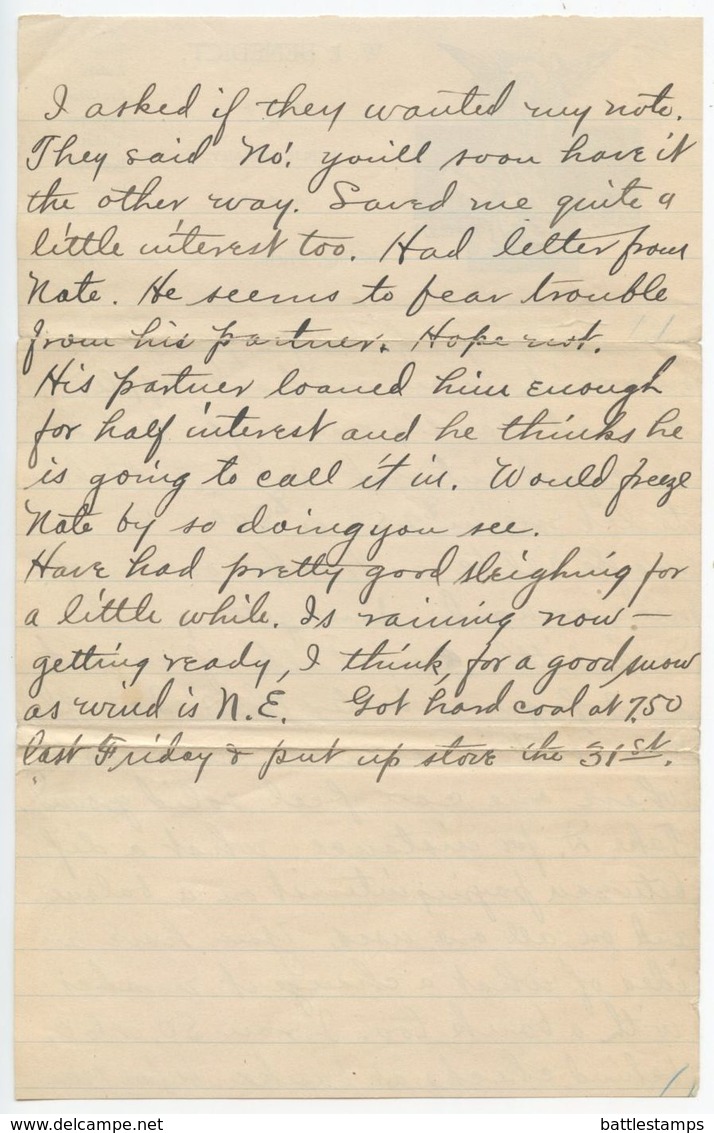 I asked if they wanted my note.
They said No! you'll soon have it
the other way. Saved me quite a
little interest too. Had letter from
Nate. He seems to fear trouble
from his partner. Hope not.
His partner loaned him enough
for half interest and he thinks he
is going to call it in. Would freeze
Nate by so doing you see.
Have had pretty good sleighing for
a little while. Is raining now —
getting ready, I think, for a good snow
as wind is N.E. Got hard coal at 7.50
last Friday & put up stove the 31st.
battlestamps